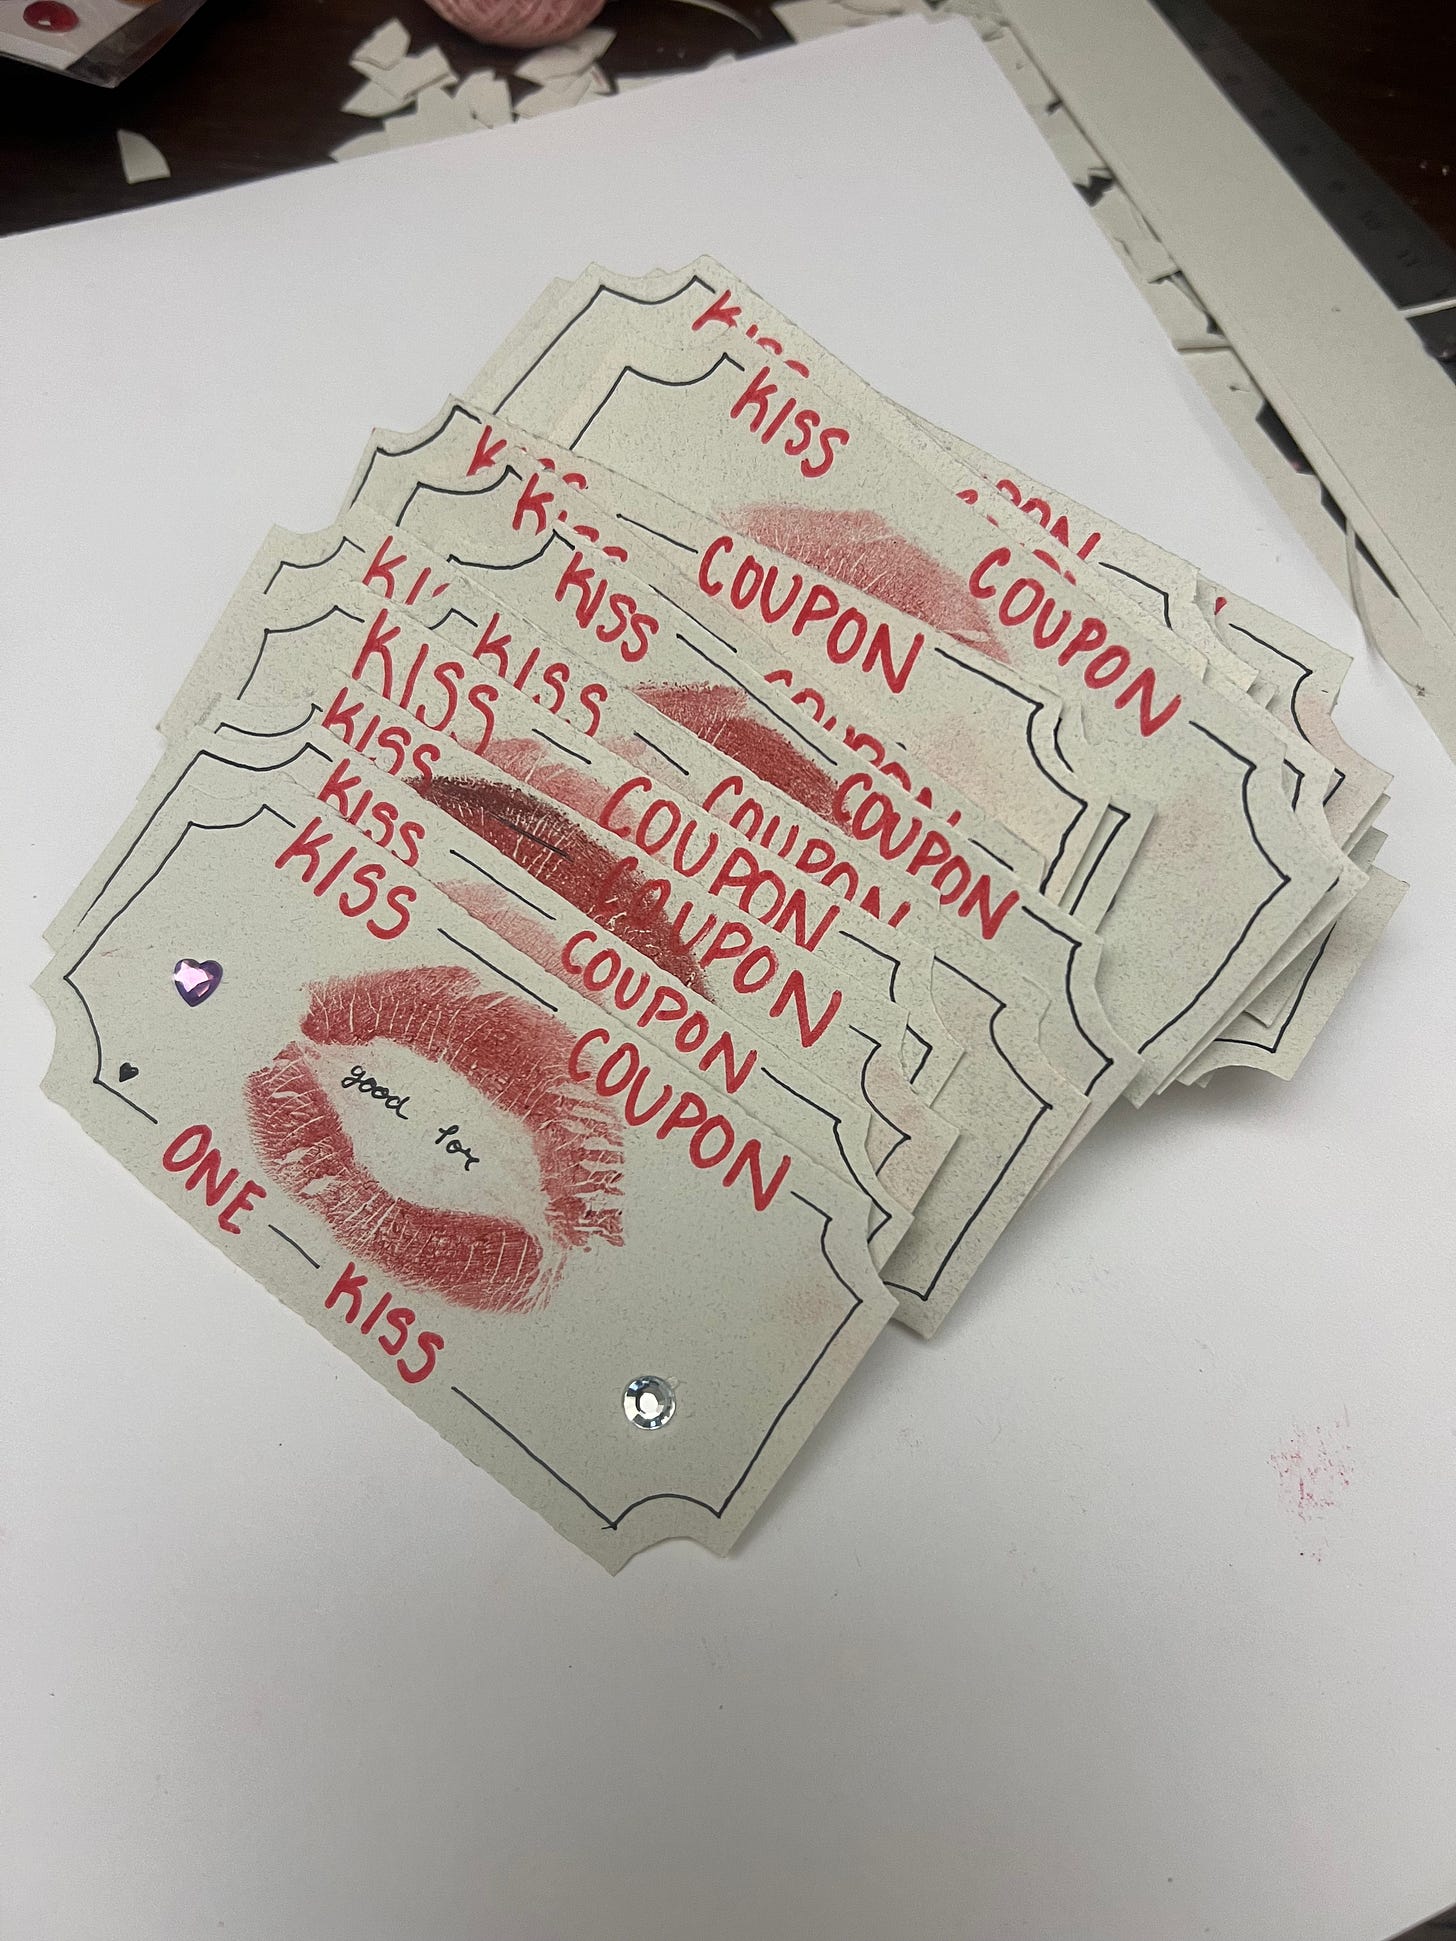 KISS COUPON
COUPON
KISS COUPON
KISS COUPON
KISS COUPON
KISS COUPON
KISS COUPON
KISS COUPON
good for
ONE KISS